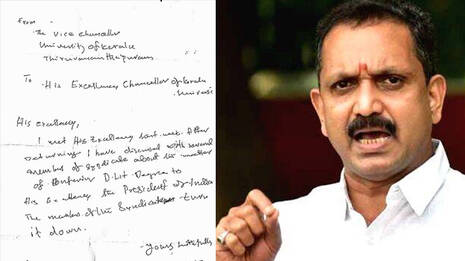 From
The Vice Chancellor
University of Kerala
Thiruvananthapuram
To His Excellency Chancellor of Kerala
His excellency,
I met His Excellency last week. After
returning I have discussed with several
members of syndicate about the matter
of Conferring D.Lit Degree to
His Excellency the President of India
The members of the Syndicate turn
it down.
Yours faithfully